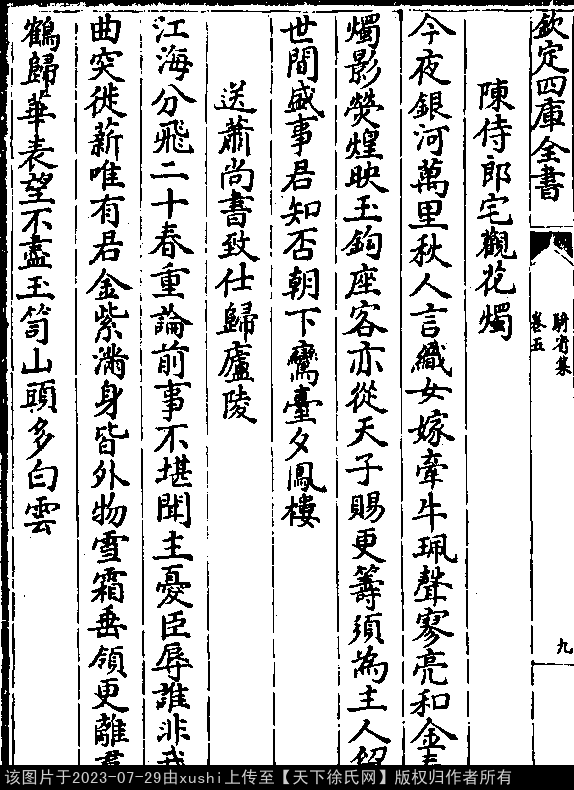 欽定四庫全書
騎省集
卷五
九
陳侍郎宅觀花燭
今夜銀河萬里秋人言織女嫁牽牛珮聲寥亮和金
燭影熒煌映玉鈎座客亦從天子賜更籌須為主人
世間盛事君知否朝下鸞臺夕鳳樓
送蕭尚書致仕歸廬陵
江海分飛二十春重論前事不堪聞主憂臣辱誰非我
曲突徙薪唯有君金紫滿身皆外物雪霜垂領更離
鶴歸華表望不盡玉笥山頭多白雲
该图片于2023-07-29由xushi上传至【天下徐氏网】版权归作者所有